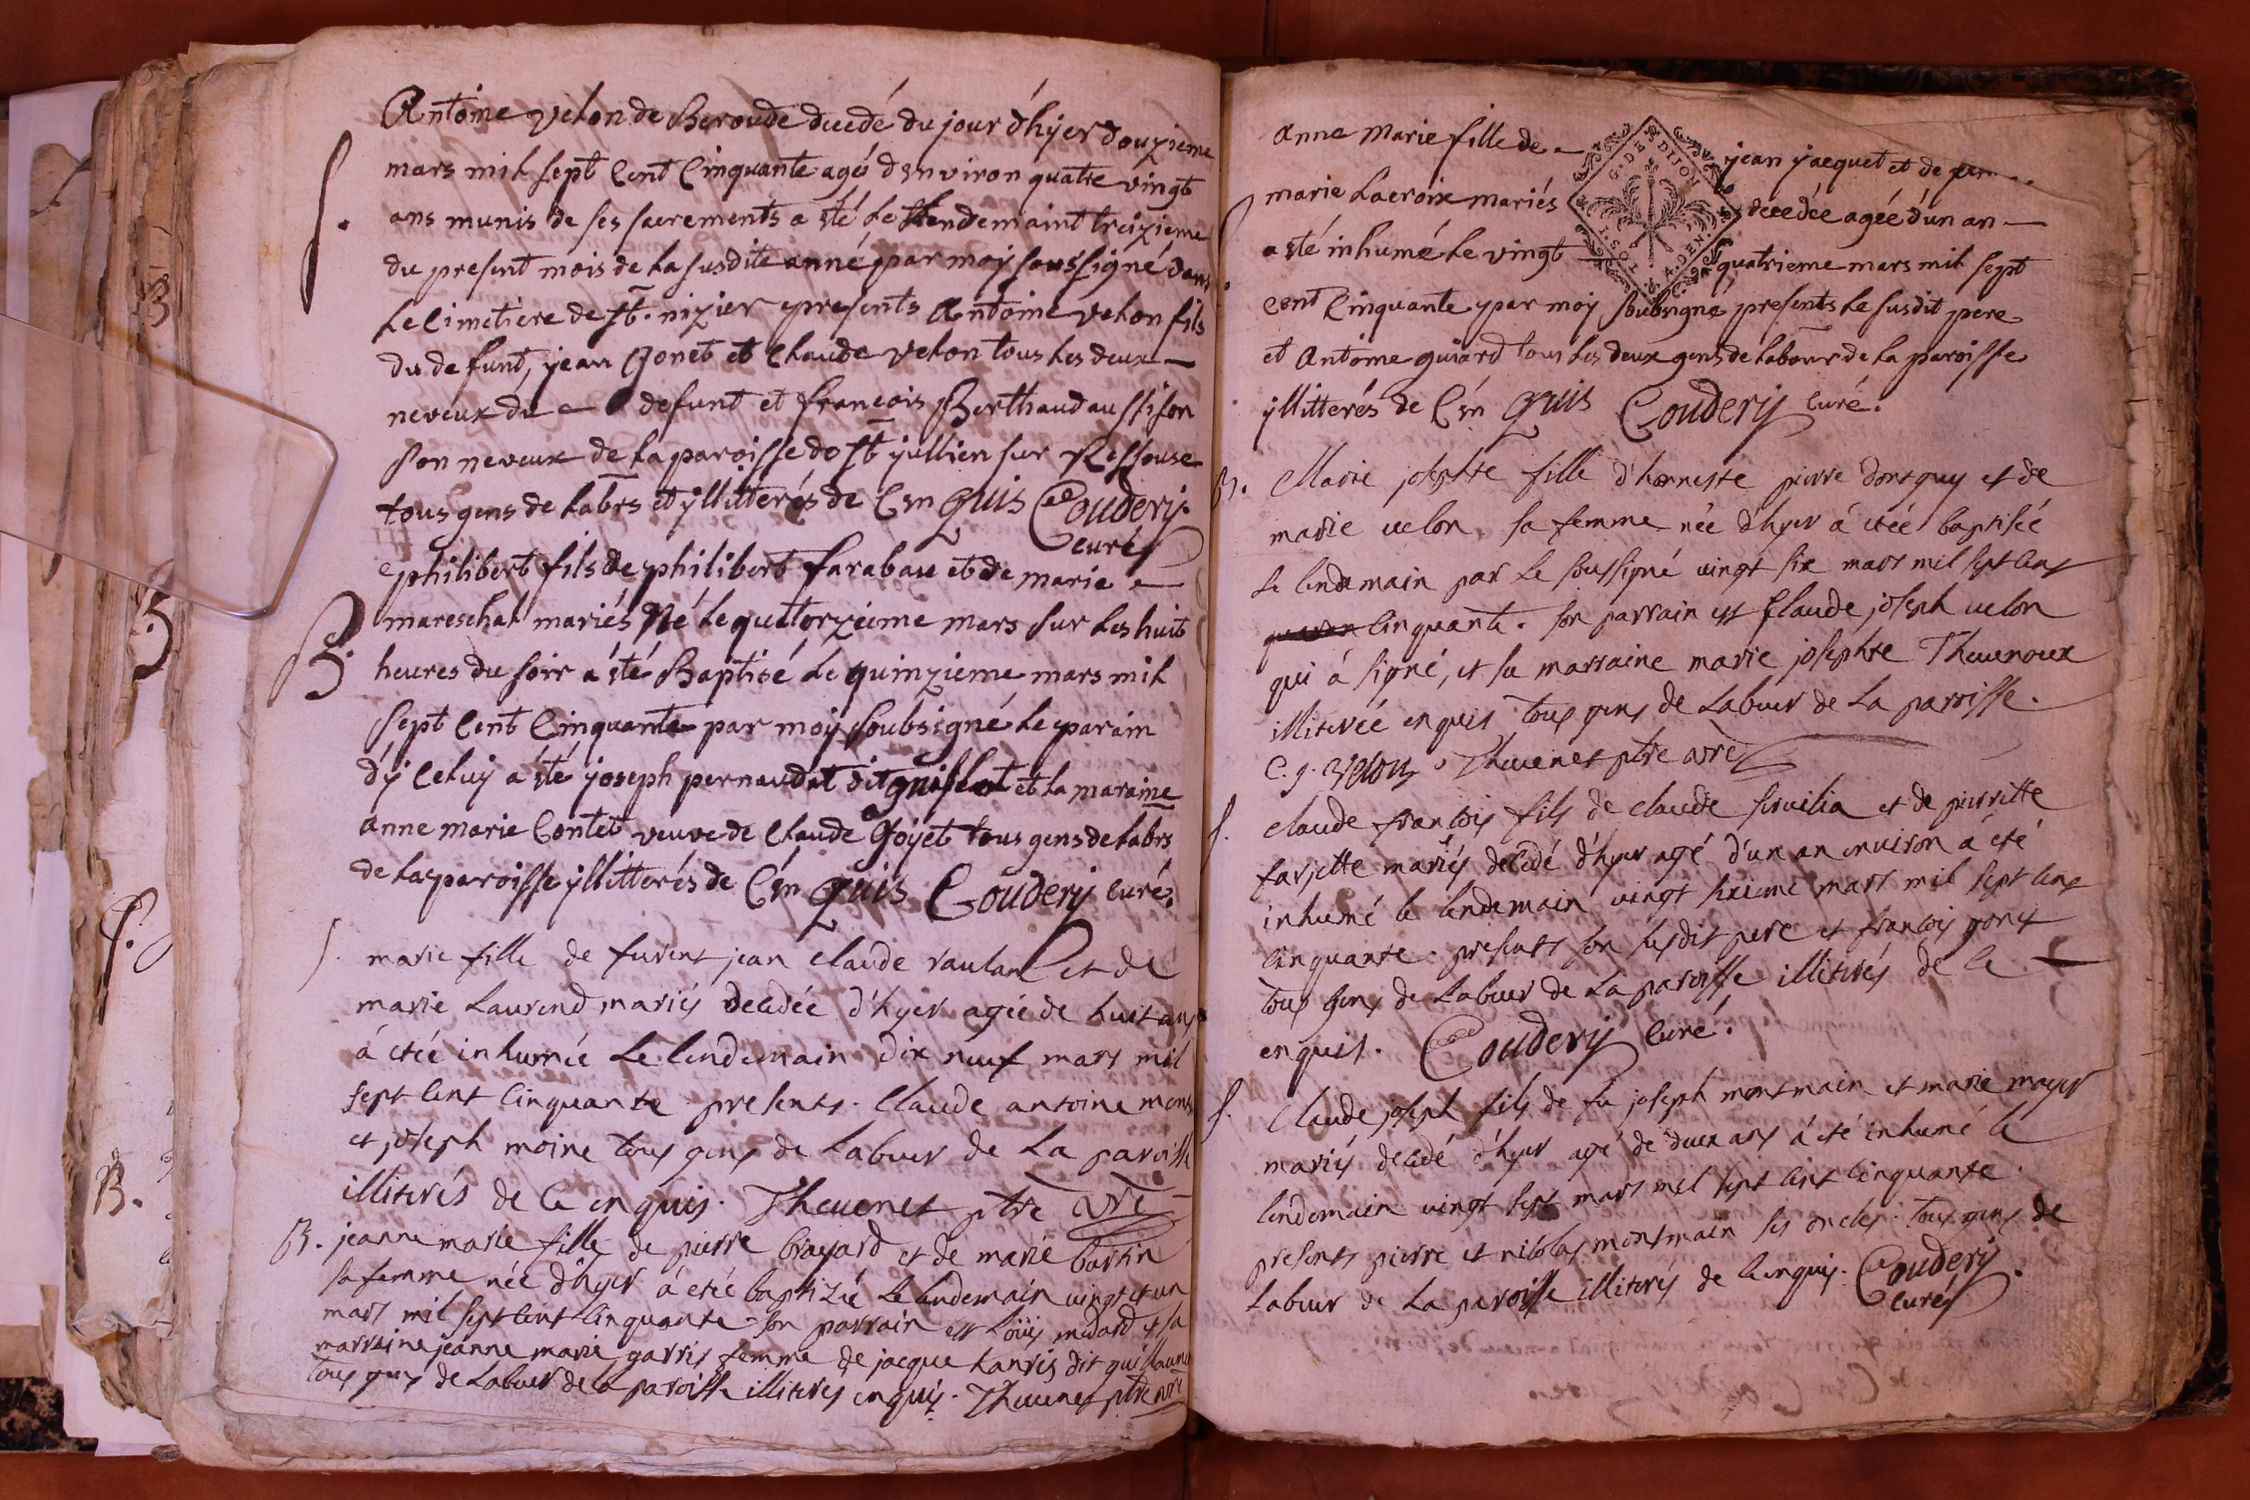 Antoine velon de Beroude decedé du jour d'hyer douzieme
S.
mars mil sept Cent Cinquante agé d'environ quatre vingt
ans munis de ses sacrements a été Le Lendemaint treizieme
du present mois de La susdite anné par moy soussigné dans
Le Cimetiere de st. nizier presents Antoine velon fils
du defunt, jean Gonet et Claude velon tous Les deux
neveux du defunt et françois Berthaud aussi son
son neveux de La paroisse de st jullien sur Ressouse
tous gens de Labrs et yllitterés de Cen quis Coudery
curé
philibert fils de philibert farabau et de marie
B.
mareschal mariés Né Le quatorzeime mars sur Les huit
heures du soir a été Baptisé Le quinzieme mars mil
sept Cent Cinquante par moy soubsigné Le parain
d'y Celuy a été joseph pernaudat dit et La maraine
anne marie Contet veuve de Claude Goyet tous gens de Labrs
de La paroisse yllitterés de Cen quis Coudery curé.
S.
marie fille de furent jean claude et de
marie Laurend mariés decedée d'hyer agée de huit ans
á etée inhumée Le lendemain dix neuf mars mil
sept Cent Cinquante presents. Claude antoine
et joseph moine tous gens de Labeur de La paroisse
illiterés de Ce enquis. Thevenet ptre vre
B. jeanne marie fille de pierre brayard et de marie
sa femme née d'hyer á etée baptizée Le lendemain vingt et un
mars mil sept Cent Cinquante son parrain est Loüis midard et sa
marraine jeanne marie femme de jacque dit guillaume
tous gens de Labeur de la paroisse illiterés enquis. Thevenet ptre vre
anne Marie fille de jean jacquet et de
marie Lacroix mariés decedée agée d'un an
a été inhumé Le vingt quatrieme mars mil sept
cent Cinquante par moy soubsigné presents Le susdit pere
et Antoine guiard tous Les deux gens de Labour de La paroisse
yllitterés de Cen quis Coudery curé.
G. DE DIJON
B. Marie josephte fille d'honneste pierre et de
marie velon sa femme née d'hyer á etée baptisée
le lendemain par Le soussigné vingt six mars mil sept cent
Cinquante. son parrain est Claude joseph velon
qui á signé, et sa marraine marie josephte Thevenoux
illiterée enquis tous gens de Labeur de La paroisse.
C. j. velon Thevenet ptre vre
S. claude françois fils de claude et de pierrette
farjette mariés decedé d'hyer agé d'un an environ a été
inhumé le lendemain vingt sixieme mars mil sept Cent
Cinquante. presents son susdit pere et françois
tous gens de Labeur de La paroisse illiterés de Ce
enquis. Coudery curé.
S. Claude joseph fils de fu joseph montmain et marie
mariés decedé d'hyer agé de deux ans á été inhumé le
lendemain vingt sept mars mil sept Cent Cinquante.
presents pierre et nicolas montmain ses oncles. tous gens de
Labeur de La paroisse illiterés de Ce enquis. Coudery
curé